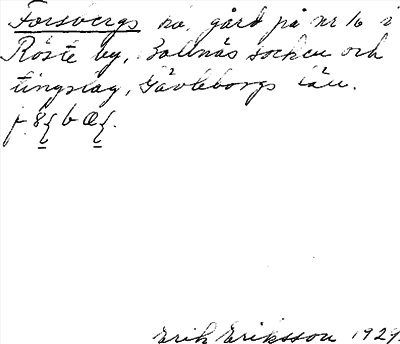 Forsbergs  gård på nr 16 i
Röste by, Bollnäs socken och
tingslag, Gävleborgs län.
Erik Eriksson 1929.